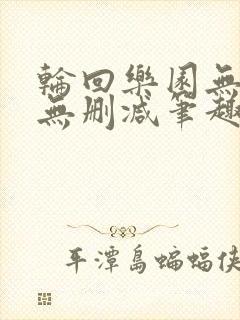 輪回樂園無
無刪減筆趣
平潭島蝙蝠俠